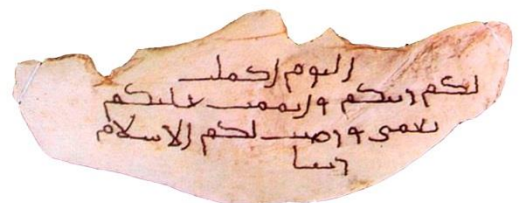 اليوم اكملت
لكم دينكم واتممت عليكم
نعمتي ورضيت لكم الاسلام
دينا